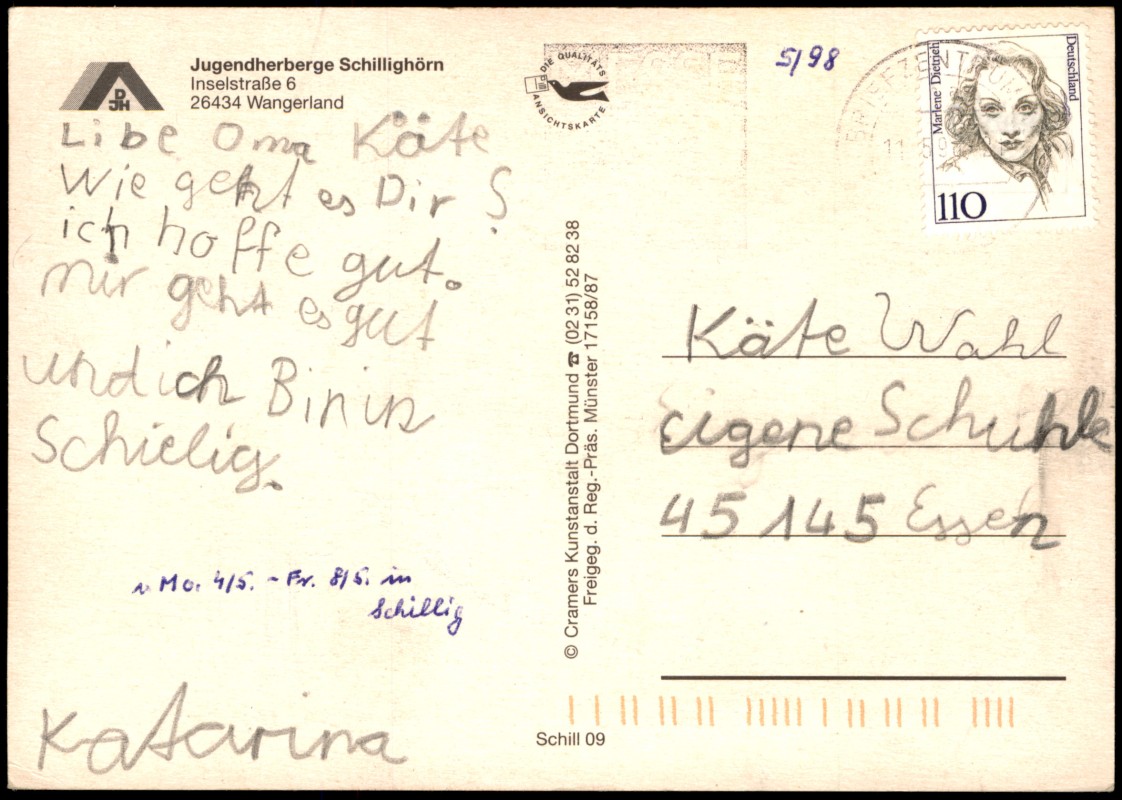 Jugendherberge Schillighörn
Inselstraße 6
26434 Wangerland
DJH
Libe Oma Käte
Wie geht es Dir ?
ich hoffe gut.
mir geht es gut
und ich Bin in
Schielig.
v. Mo. 4/5. - Fr. 8/5. in
Schillig
Katarina
DIE QUALITÄTS
ANSICHTSKARTE
5/98
BRIEFZENTRUM
11
Marlene Dietrich
Deutschland
110
© Cramers Kunstanstalt Dortmund ☎ (02 31) 52 82 38
Freigeg. d. Reg.-Präs. Münster 17158/87
Käte Wahl
Eigene Schuhle
45145 Essen
Schill 09